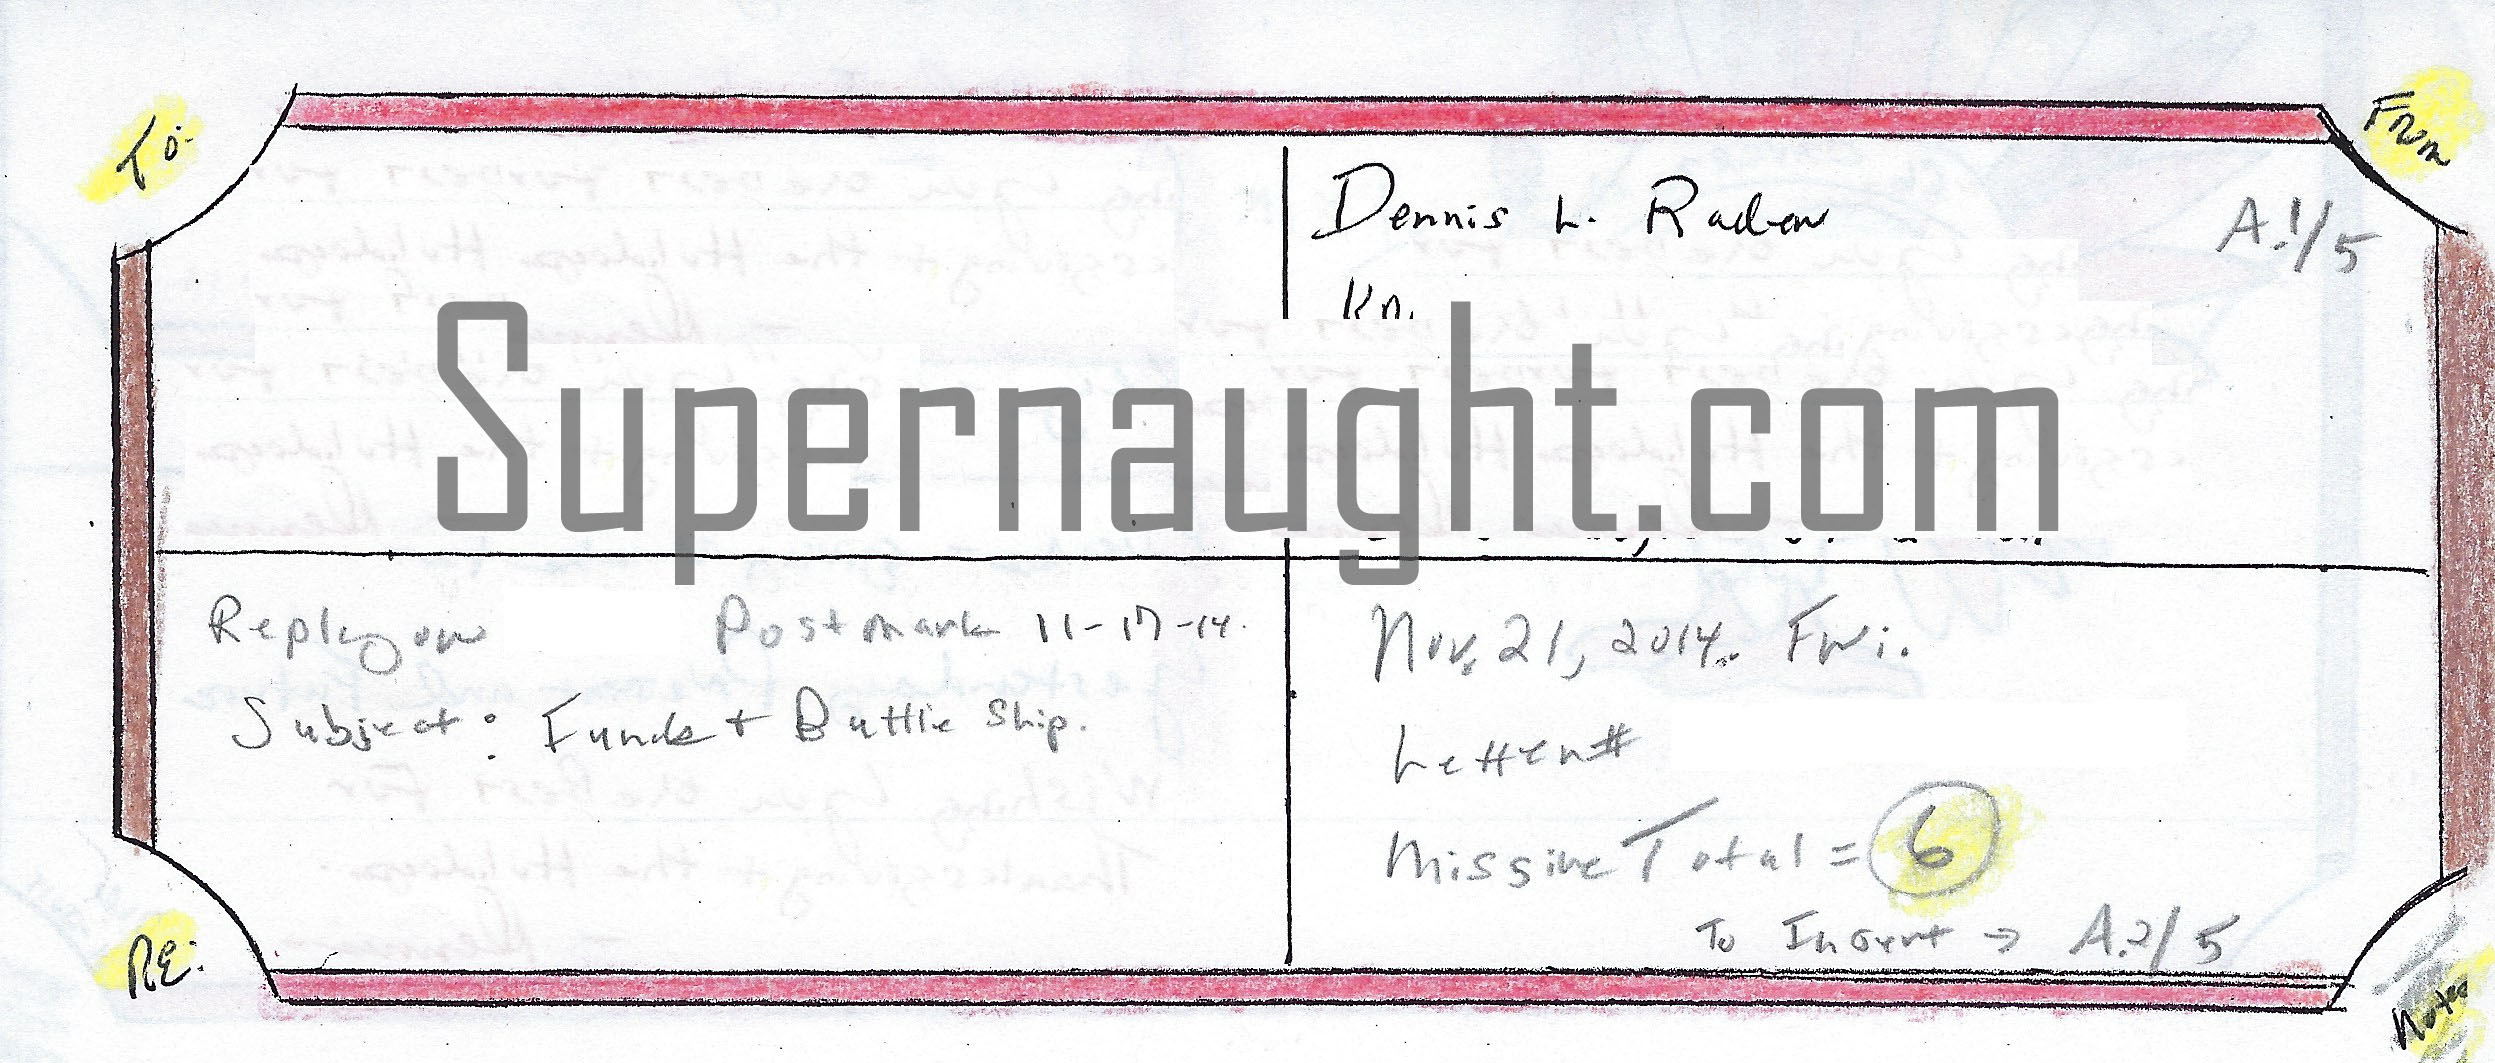 To:
From
Dennis L. Rader
A.1/5
Supernaught.com
Reply on Postmark 11-17-14.
Subject: Funds + Battle Ship.
Nov. 21, 2014. Fri.
Letter#
Missive Total = 6
To Insert → A.2/5
RE:
Notes